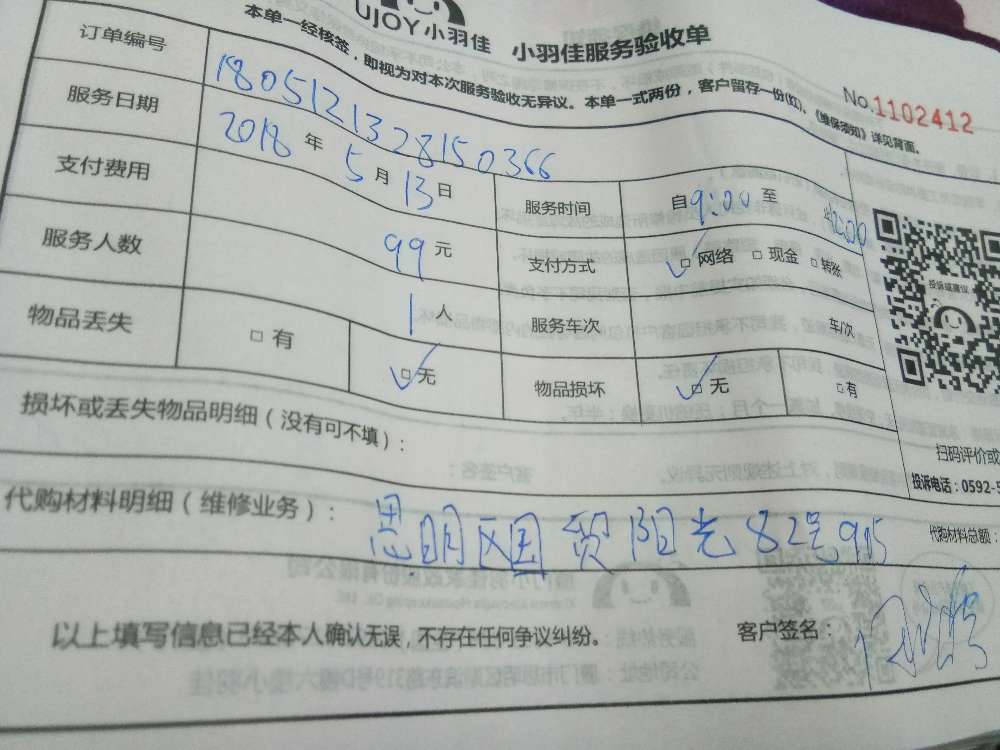 UJOY小羽佳 小羽佳服务验收单
本单一经核签，即视为对本次服务验收无异议。本单一式两份，客户留存一份(红)、《维保须知》详见背面。
No.1102412
订单编号 1805121328150366
服务日期 2018 年 5 月 13 日 服务时间 自 9:00 至 12:00
支付费用 99 元 支付方式 □网络 □现金 □转账
服务人数 1 人 服务车次 车/次
物品丢失 □有 □无 物品损坏 □无 □有
投诉或建议
扫码评价或
投诉电话：0592-5
损坏或丢失物品明细（没有可不填）：
代购材料明细（维修业务）： 思明区国贸阳光82号905 代购材料总额：
以上填写信息已经本人确认无误，不存在任何争议纠纷。 客户签名：